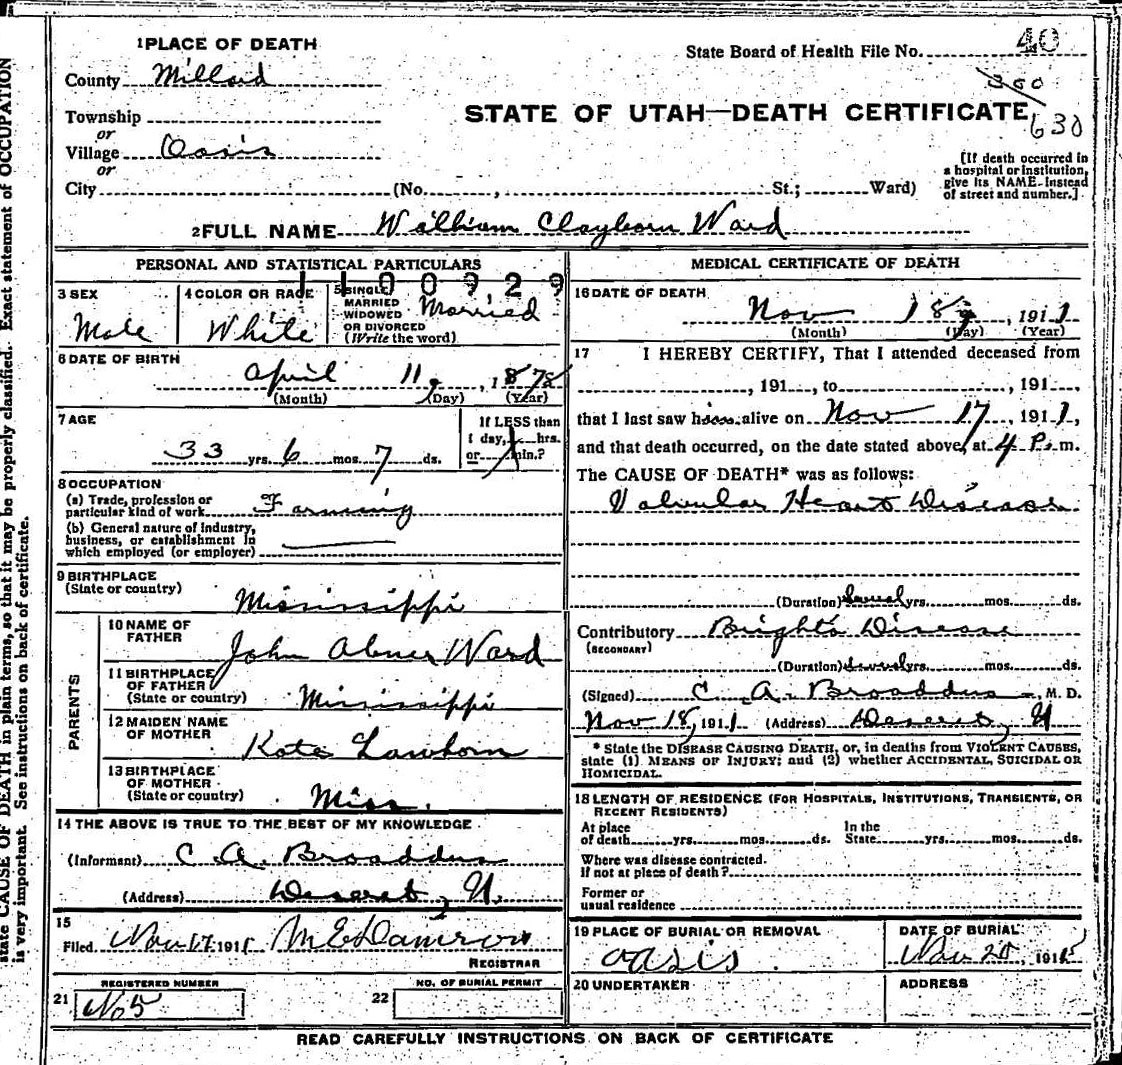 state CAUSE OF DEATH in plain terms, so that it may be properly classified. Exact statement of OCCUPATION
is very important. See instructions on back of certificate.
1 PLACE OF DEATH
State Board of Health File No. 40
County Millard
350
630
STATE OF UTAH—DEATH CERTIFICATE
Township
or
Village Oasis
or
City (No. , St.; Ward)
[If death occurred in
a hospital or institution,
give its NAME instead
of street and number.]
2 FULL NAME William Clayborn Ward
PERSONAL AND STATISTICAL PARTICULARS
1100929
3 SEX
Male
4 COLOR OR RACE
White
5 SINGLE,
MARRIED
WIDOWED
OR DIVORCED
(Write the word)
Married
6 DATE OF BIRTH
April 11, 1878
(Month) (Day) (Year)
7 AGE
33 yrs. 6 mos. 7 ds.
If LESS than
1 day, hrs.
or min.?
8 OCCUPATION
(a) Trade, profession or
particular kind of work Farming
(b) General nature of industry,
business, or establishment in
which employed (or employer)
9 BIRTHPLACE
(State or country)
Mississippi
PARENTS
10 NAME OF
FATHER
John Abner Ward
11 BIRTHPLACE
OF FATHER
(State or country) Mississippi
12 MAIDEN NAME
OF MOTHER
Kate Lawhorn
13 BIRTHPLACE
OF MOTHER
(State or country) Miss.
14 THE ABOVE IS TRUE TO THE BEST OF MY KNOWLEDGE
(Informant) C. A. Broaddus
(Address) Deseret, U.
15
Filed Nov. 17 1911 M E Damron
REGISTRAR
REGISTERED NUMBER
21 No 5
NO. OF BURIAL PERMIT
22
MEDICAL CERTIFICATE OF DEATH
16 DATE OF DEATH
Nov 18, 1911
(Month) (Day) (Year)
17 I HEREBY CERTIFY, That I attended deceased from
, 191 , to , 191 ,
that I last saw him alive on Nov 17, 1911,
and that death occurred, on the date stated above, at 4 P. m.
The CAUSE OF DEATH* was as follows:
Valvular Heart Disease
(Duration) several yrs. mos. ds.
Contributory Brights Disease
(SECONDARY)
(Duration) several yrs. mos. ds.
(Signed) C. A. Broaddus, M. D.
Nov 18, 1911 (Address) Deseret, U
* State the DISEASE CAUSING DEATH, or, in deaths from VIOLENT CAUSES,
state (1) MEANS OF INJURY; and (2) whether ACCIDENTAL, SUICIDAL OR
HOMICIDAL.
18 LENGTH OF RESIDENCE (FOR HOSPITALS, INSTITUTIONS, TRANSIENTS, OR
RECENT RESIDENTS)
At place
of death yrs. mos. ds.
In the
State yrs. mos. ds.
Where was disease contracted.
If not at place of death?
Former or
usual residence
19 PLACE OF BURIAL OR REMOVAL
oasis
DATE OF BURIAL
Nov 20, 1911
20 UNDERTAKER
ADDRESS
READ CAREFULLY INSTRUCTIONS ON BACK OF CERTIFICATE